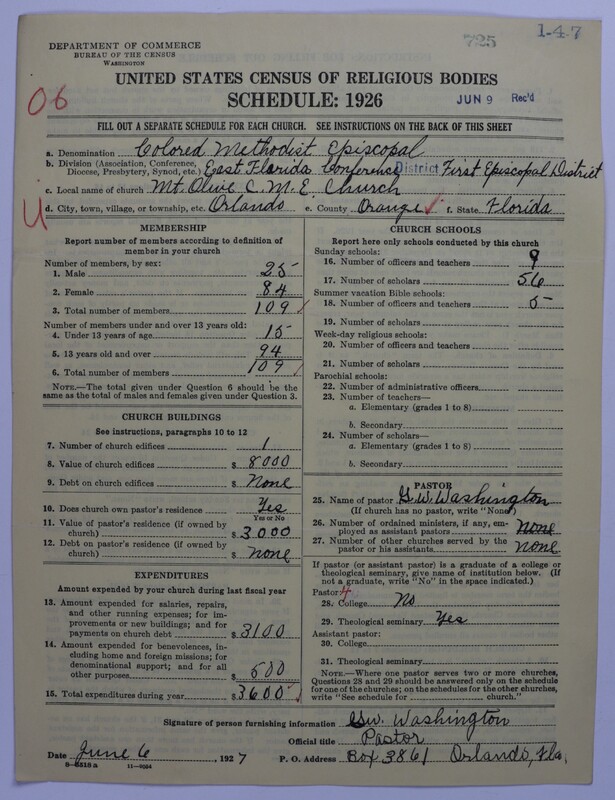 725
1-4-7
DEPARTMENT OF COMMERCE
BUREAU OF THE CENSUS
WASHINGTON
06
UNITED STATES CENSUS OF RELIGIOUS BODIES
SCHEDULE: 1926
JUN 9 Rec'd
FILL OUT A SEPARATE SCHEDULE FOR EACH CHURCH. SEE INSTRUCTIONS ON THE BACK OF THIS SHEET
a. Denomination Colored Methodist Episcopal
b. Division (Association, Conference, Diocese, Presbytery, Synod, etc.) East Florida Conference District First Episcopal District
c. Local name of church Mt. Olive C. M. E. Church
U
d. City, town, village, or township, etc. Orlando e. County Orange f. State Florida
MEMBERSHIP
Report number of members according to definition of
member in your church
Number of members, by sex:
1. Male 25
2. Female 84
3. Total number of members 109
Number of members under and over 13 years old:
4. Under 13 years of age 15
5. 13 years old and over 94
6. Total number of members 109
NOTE.—The total given under Question 6 should be
same as the total of males and females given under Question 3.
CHURCH BUILDINGS
See instructions, paragraphs 10 to 12
7. Number of church edifices 1
8. Value of church edifices $ 8000
9. Debt on church edifices $ None
10. Does church own pastor's residence? Yes
Yes or No
11. Value of pastor's residence (if owned by
church) $ 3000
12. Debt on pastor's residence (if owned by
church) $ none
EXPENDITURES
Amount expended by your church during last fiscal year
13. Amount expended for salaries, repairs,
and other running expenses; for im-
provements or new buildings; and for
payments on church debt $ 3100
14. Amount expended for benevolences, in-
cluding home and foreign missions; for
denominational support; and for all
other purposes 500
15. Total expenditures during year $ 3600
CHURCH SCHOOLS
Report here only schools conducted by this church
Sunday schools:
16. Number of officers and teachers 9
17. Number of scholars 56
Summer vacation Bible schools:
18. Number of officers and teachers 5
19. Number of scholars
Week-day religious schools:
20. Number of officers and teachers
21. Number of scholars
Parochial schools:
22. Number of administrative officers
23. Number of teachers—
a. Elementary (grades 1 to 8)
b. Secondary
24. Number of scholars—
a. Elementary (grades 1 to 8)
b. Secondary
PASTOR
25. Name of pastor G. W. Washington
(If church has no pastor, write "None")
26. Number of ordained ministers, if any, em-
ployed as assistant pastors none
27. Number of other churches served by the
pastor or his assistants none
If pastor (or assistant pastor) is a graduate of a college or
theological seminary, give name of institution below. (If
not a graduate, write "No" in the space indicated.)
Pastor: 4
28. College No
29. Theological seminary Yes
Assistant pastor:
30. College
31. Theological seminary
NOTE.—Where one pastor serves two or more churches,
Questions 28 and 29 should be answered only on the schedule
for one of the churches; on the schedules for the other churches,
write "See schedule for church."
Signature of person furnishing information G. W. Washington
Official title Pastor
Date June 6, 1927 P. O. Address Box 3861 Orlando, Fla.